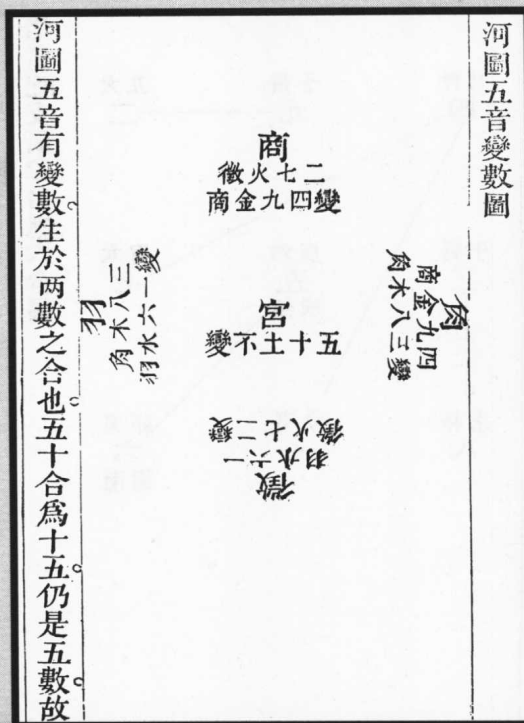 河圖五音變數圖
商
二七火徵
變四九金商
角
四九金商
變三八木角
宮
五十土不變
羽
三八木角
變一六水羽
徵
一六水羽
變二七火徵
河圖五音有變數生於两數之合也五十合爲十五仍是五數故